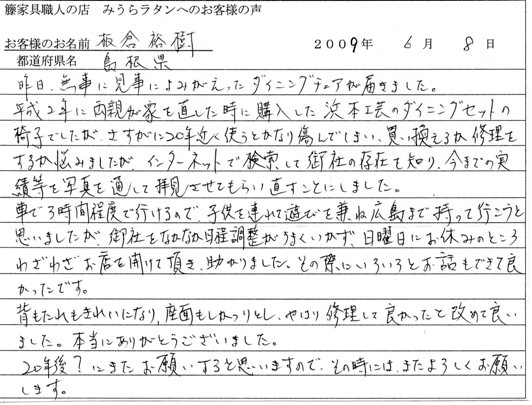 籐家具職人の店　みうらラタンへのお客様の声
お客様のお名前 板倉裕樹 2009年 6月 8日
都道府県名 島根県
昨日、無事に見事によみがえったダイニングチェアが届きました。
平成2年に両親が家を直した時に購入した浜本工芸のダイニングセットの
椅子でしたが、さすがに20年近く使うとかなり傷んでしまい、買い換えるか修理を
するか悩みましたが、インターネットで検索して御社の存在を知り、今までの実
績等を写真を通して拝見させてもらい直すことにしました。
車で3時間程度で行けるので、子供を連れて遊びを兼ね広島まで持って行こうと
思いましたが、御社となかなか日程調整がうまくいかず、日曜日にお休みのところ
わざわざお店を開けて頂き、助かりました。その際にいろいろとお話もできて良
かったです。
背もたれもきれいになり、座面もしっかりとし、やはり修理して良かったと改めて良い
ました。本当にありがとうございました。
20年後?にまたお願いすると思いますので、その時には、またよろしくお願い
します。